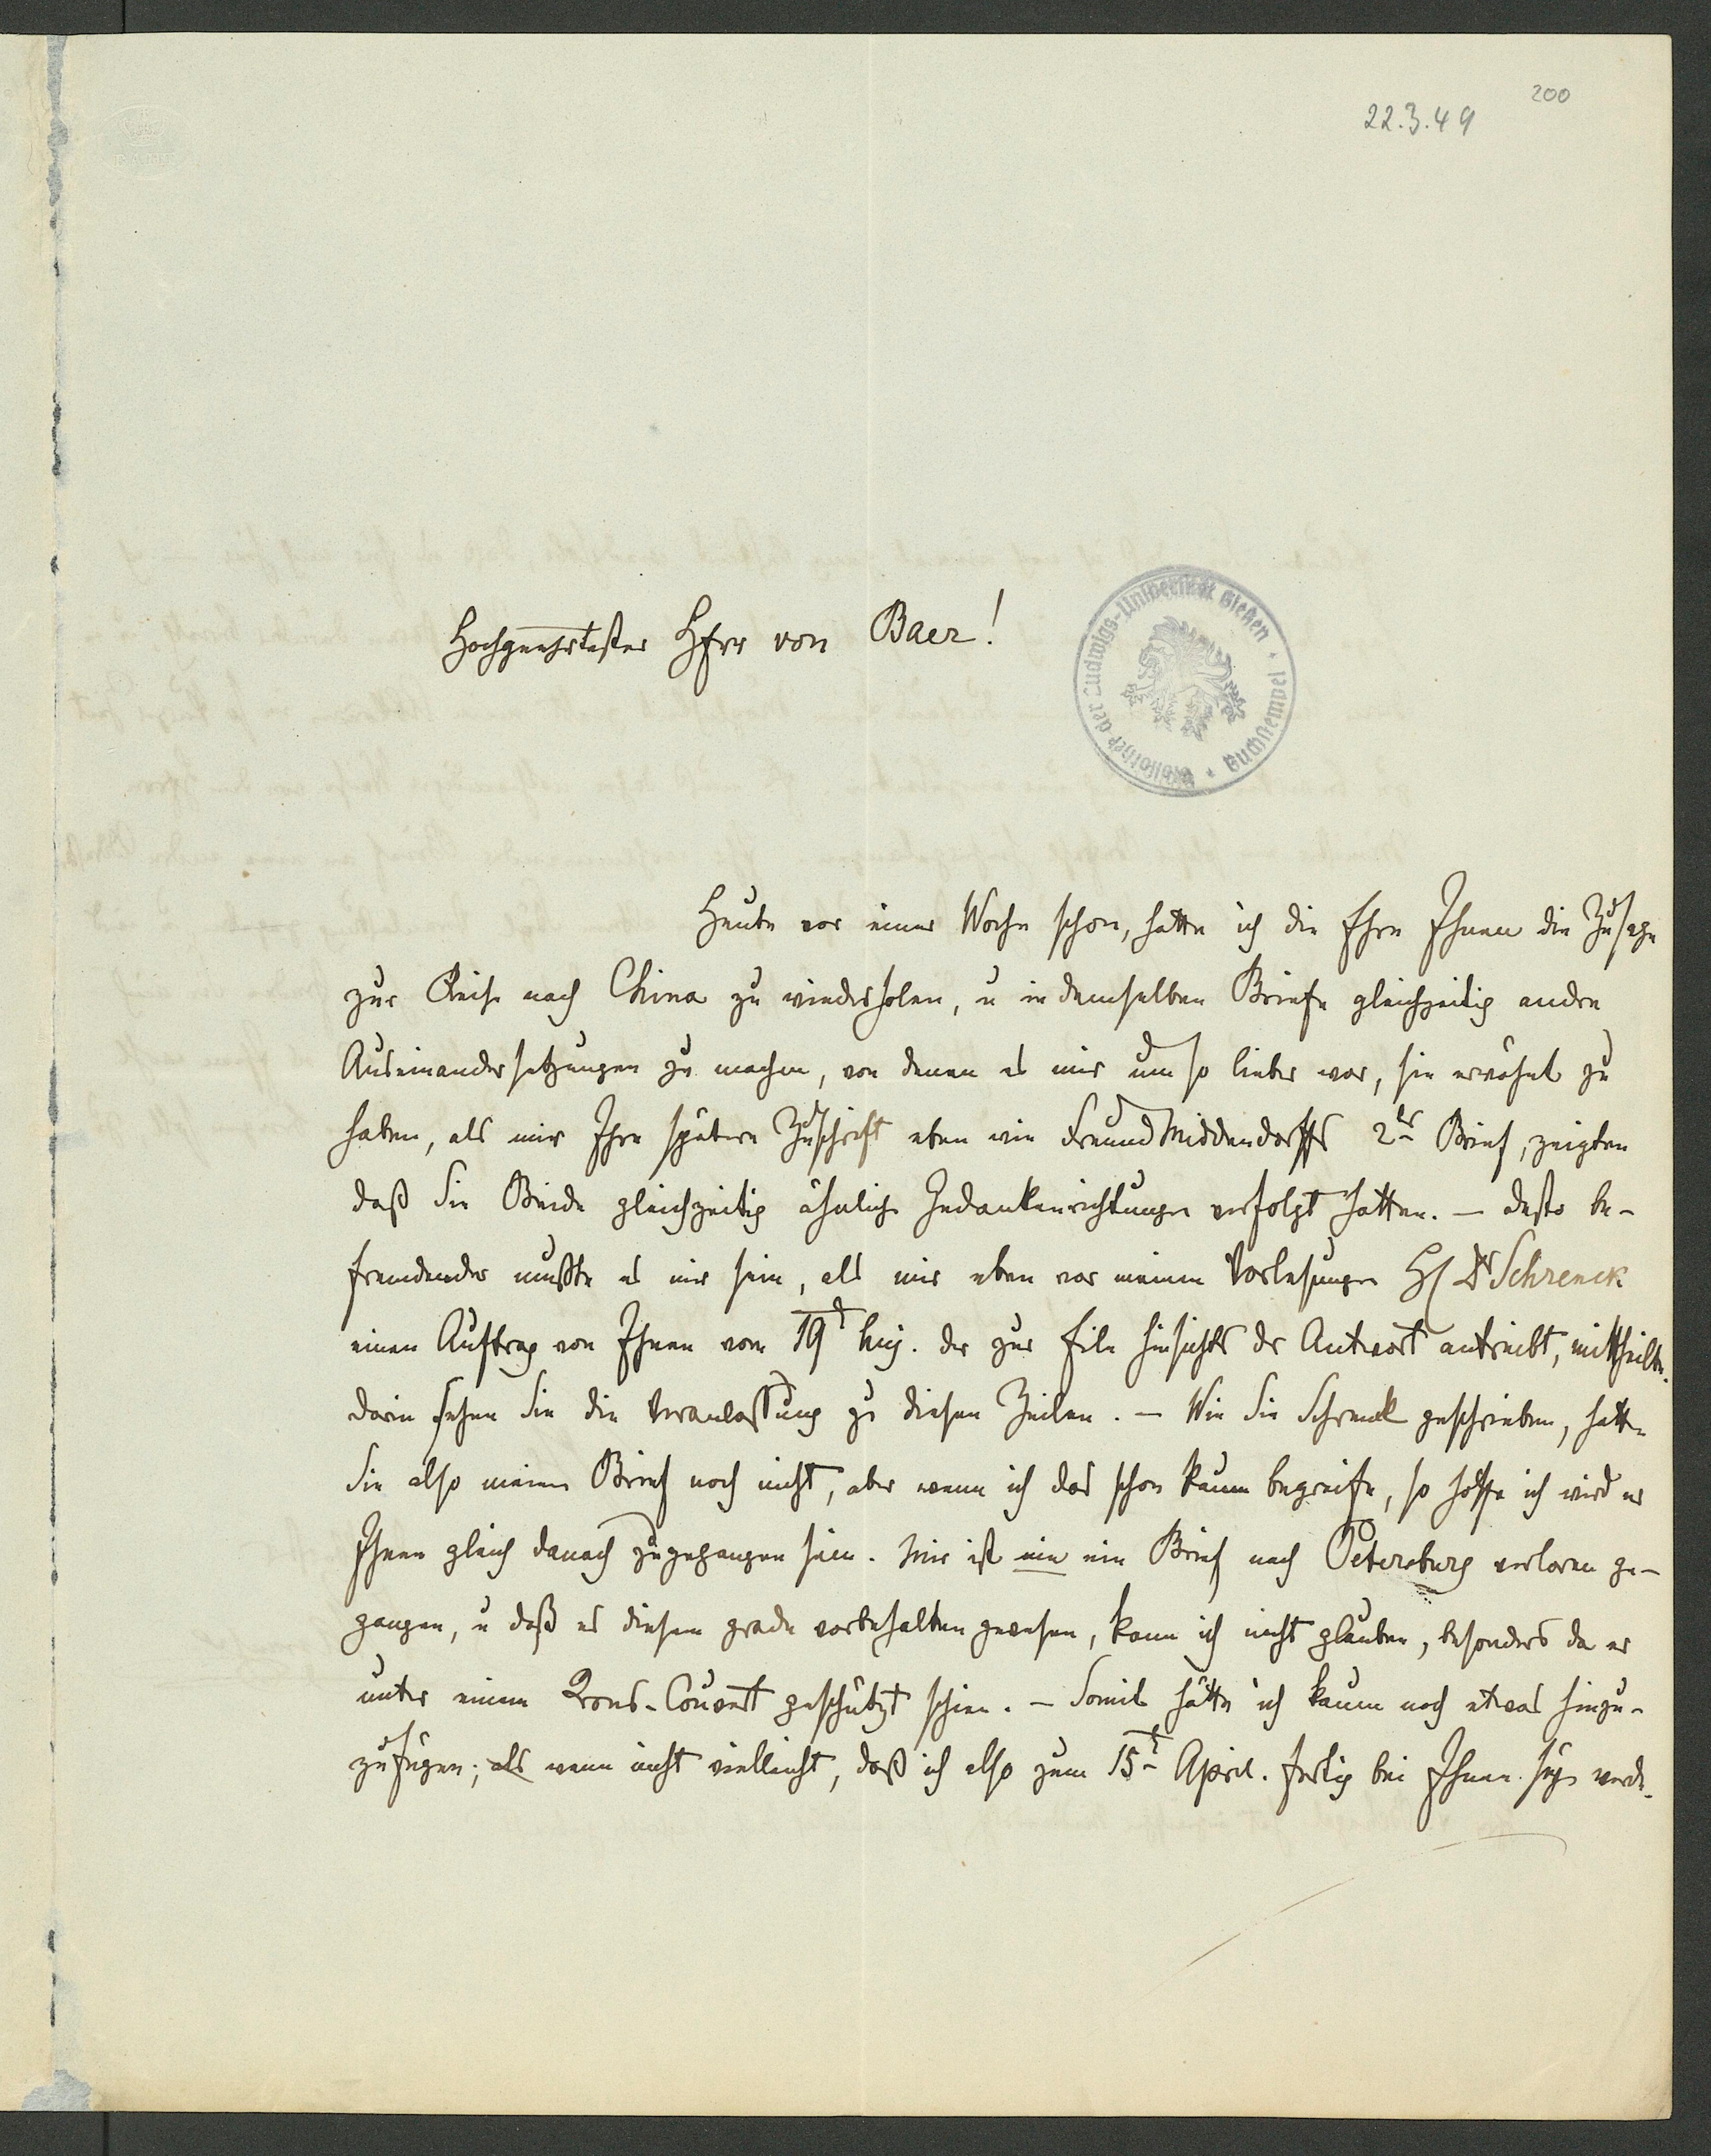 200
22.3.49
Hochgeehrtester Herr von Baer!
Bibliothek der Ludwigs-Universität Gießen · Buchstempel
Heute vor einer Woche schon, hatte ich die Ehre Ihnen die Zusage
zur Reise nach China zu wiederholen, u in demselben Briefe gleichzeitig andre
Auseinandersetzungen zu machen, von denen es mir um so lieber war, sie erwähnt zu
haben, als mir Ihre spätere Zuschrift eben wie Freund Middendorffs 2ter Brief, zeigten
daß Sie Beide gleichzeitig ähnliche Gedankenrichtungen verfolgt hatten. – desto be-
fremdender mußte es mir sein, als mir eben vor meinen Vorlesungen H Dr Schrenck
einen Auftrag von Ihnen vom 19t huj. der zur Eile hinsichts der Antwort antreibt, mittheilte.
darin sehen Sie die Veranlassung zu diesen Zeilen. – Wie Sie Schrenck geschrieben, hatten
Sie also meinen Brief noch nicht, aber wenn ich das schon kaum begreife, so hoffe ich wird er
Ihnen gleich danach zugegangen sein. Mir ist nie ein Brief nach Petersburg verloren ge-
gangen, u daß es diesem grade vorbehalten gewesen, kann ich nicht glauben, besonders da er
unter einem Krons-Couvert geschützt schien. – Somit hätte ich kaum noch etwas hinzu-
zufügen; als wenn nicht vielleicht, daß ich also zum 15t April. fertig bei Ihnen seyn werde.